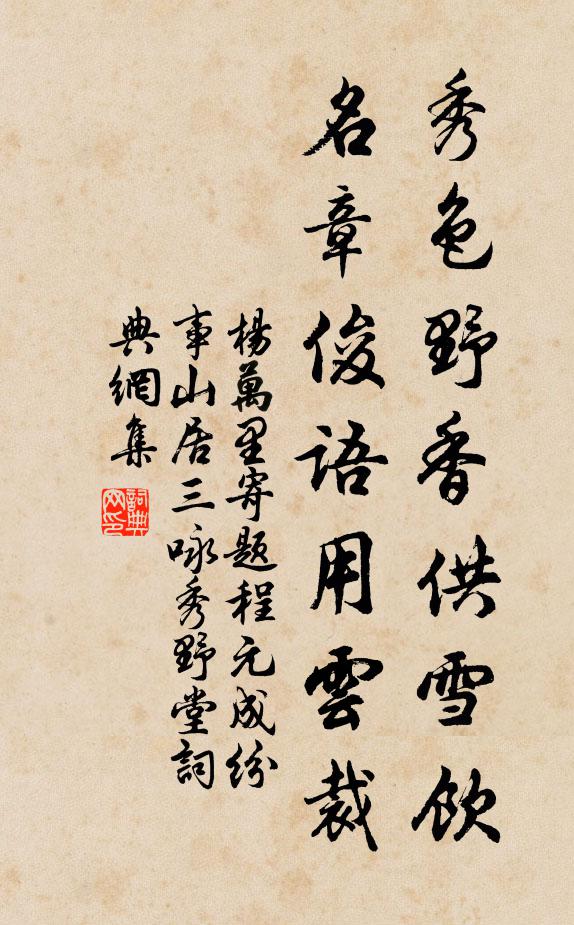 秀色野香供雪飲
名章俊語用雲裁
楊萬里寄題程元成紛
事山居三咏秀野堂詞
典網集
詞典
网印